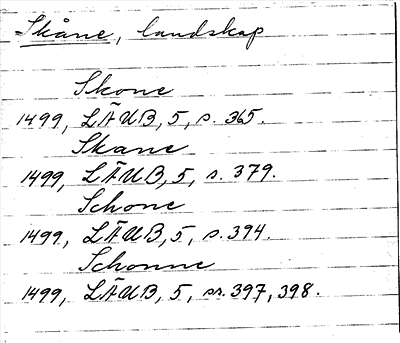 Skåne, landskap
Skone
1499, LÄUB, 5, s. 365.
Skane
1499, LÄUB, 5, s. 379.
Schone
1499, LÄUB, 5, s. 394.
Schonne
1499, LÄUB, 5, ss. 397, 398.